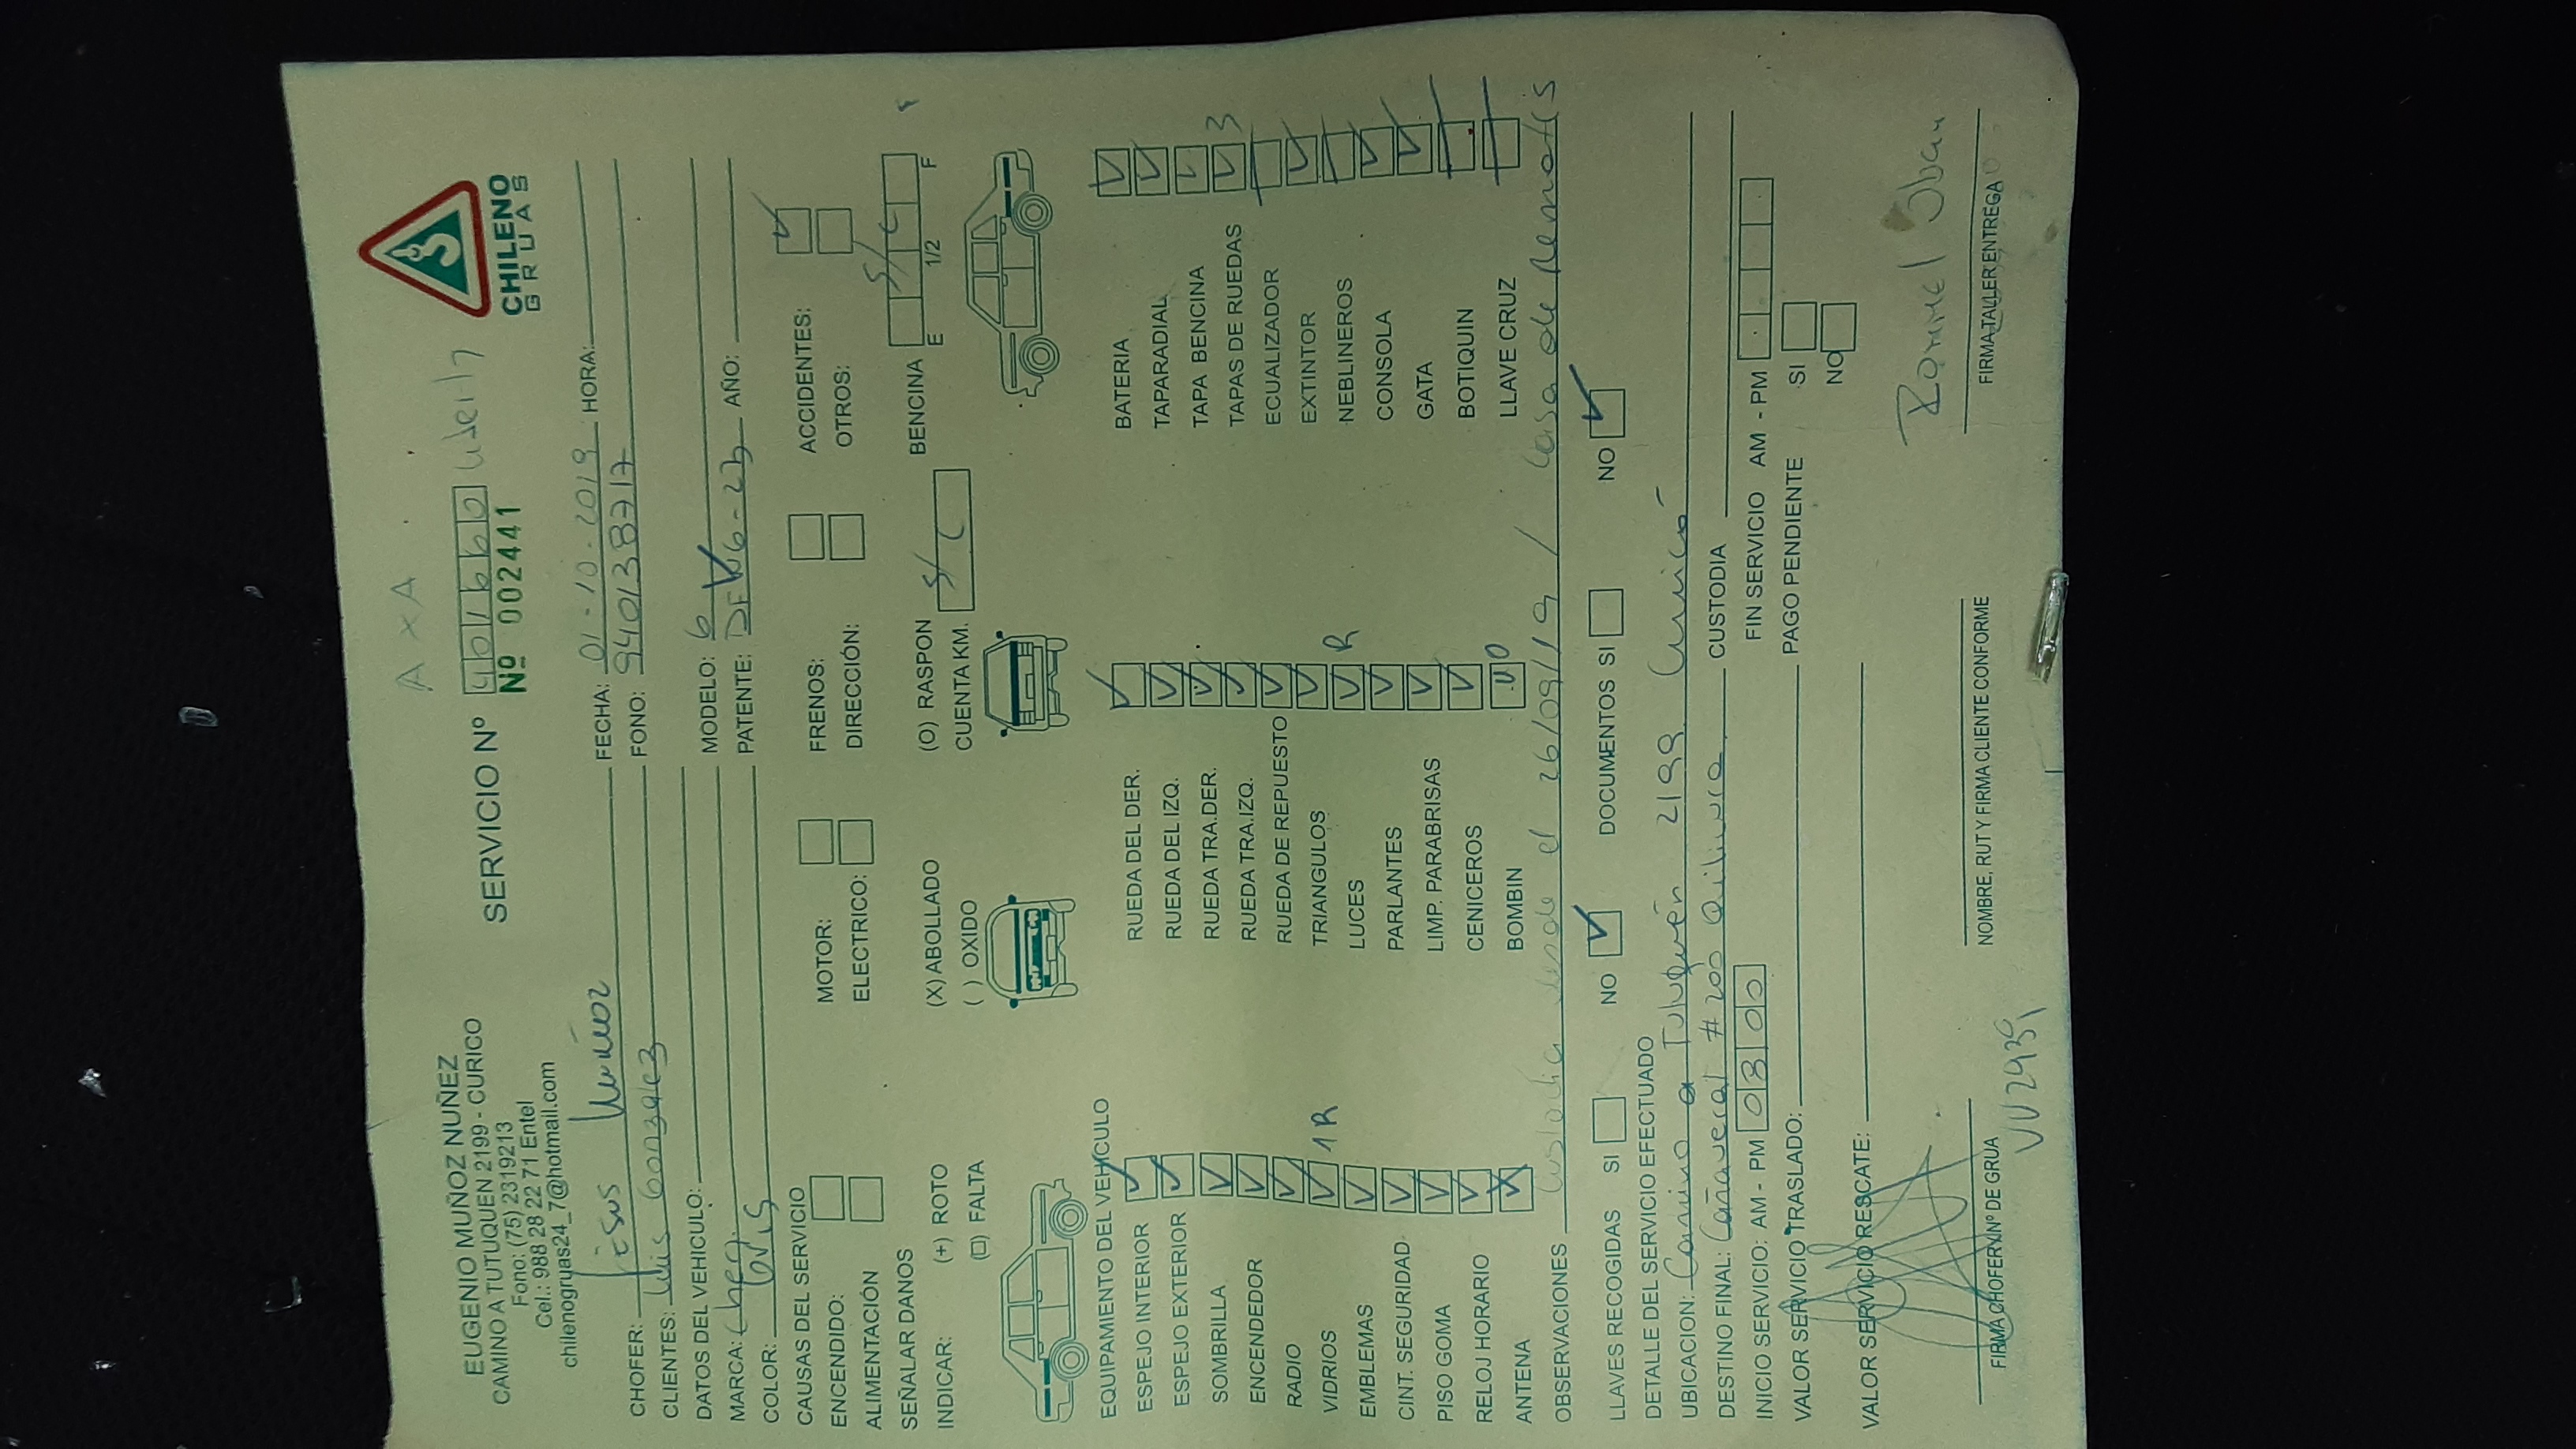 A x A
EUGENIO MUÑOZ NUÑEZ
CAMINO A TUTUQUEN 2199 - CURICO
Fono: (75) 2319213
Cel.: 988 28 22 71 Entel
chilenogruas24_7@hotmail.com
SERVICIO Nº 401660
Nº 002441
CHILENO
GRUAS
CHOFER: Jesus Muñoz FECHA: 01-10-2019 HORA:
CLIENTES: Luis Gonzalez FONO: 940138717
DATOS DEL VEHICULO:
MARCA: MODELO: 6
COLOR: Gris PATENTE: AÑO:
CAUSAS DEL SERVICIO
ENCENDIDO: MOTOR: FRENOS: ACCIDENTES: ✓
ALIMENTACIÓN ELECTRICO: DIRECCIÓN: OTROS:
SEÑALAR DANOS
INDICAR: (+) ROTO (X) ABOLLADO (O) RASPON BENCINA S/C
(□) FALTA ( ) OXIDO CUENTA KM. S/C E 1/2 F
EQUIPAMIENTO DEL VEHICULO
ESPEJO INTERIOR ✓ RUEDA DEL DER. ✓ BATERIA ✓
ESPEJO EXTERIOR ✓ RUEDA DEL IZQ. ✓ TAPARADIAL ✓
SOMBRILLA ✓ RUEDA TRA.DER. ✓ TAPA BENCINA ✓
ENCENDEDOR ✓ RUEDA TRA.IZQ. ✓ TAPAS DE RUEDAS ✓ 3
RADIO ✓ RUEDA DE REPUESTO ✓ ECUALIZADOR
VIDRIOS ✓ 1R TRIANGULOS ✓ EXTINTOR ✓
EMBLEMAS ✓ LUCES ✓ R NEBLINEROS
CINT. SEGURIDAD ✓ PARLANTES ✓ CONSOLA ✓
PISO GOMA ✓ LIMP. PARABRISAS ✓ GATA ✓
RELOJ HORARIO ✓ CENICEROS ✓ BOTIQUIN
ANTENA X BOMBIN NO LLAVE CRUZ
OBSERVACIONES Custodia desde el 26/09/19 / Casa de Remates
LLAVES RECOGIDAS SI NO ✓ DOCUMENTOS SI NO ✓
DETALLE DEL SERVICIO EFECTUADO
UBICACION: Camino a Tutuquén 2199 Curicó
DESTINO FINAL: Cañaveral # 200 Quilicura CUSTODIA
INICIO SERVICIO: AM - PM 0800 FIN SERVICIO AM - PM
VALOR SERVICIO TRASLADO: PAGO PENDIENTE SI
NO
VALOR SERVICIO RESCATE:
FIRMA CHOFER Y Nº DE GRUA
NOMBRE, RUT Y FIRMA CLIENTE CONFORME
FIRMA TALLER ENTREGA